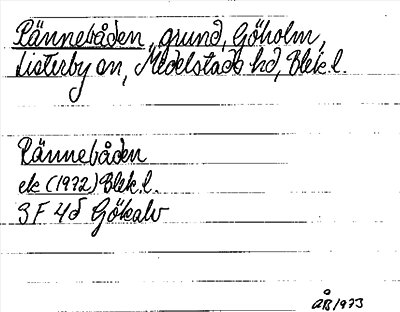 Rännebåden, grund, Göholm,
Listerby sn, Medelstads hd, Blek.l.
Rännebåden
ek (1972) Blek.l.
3F 4d Gökalv
ÅB 1973